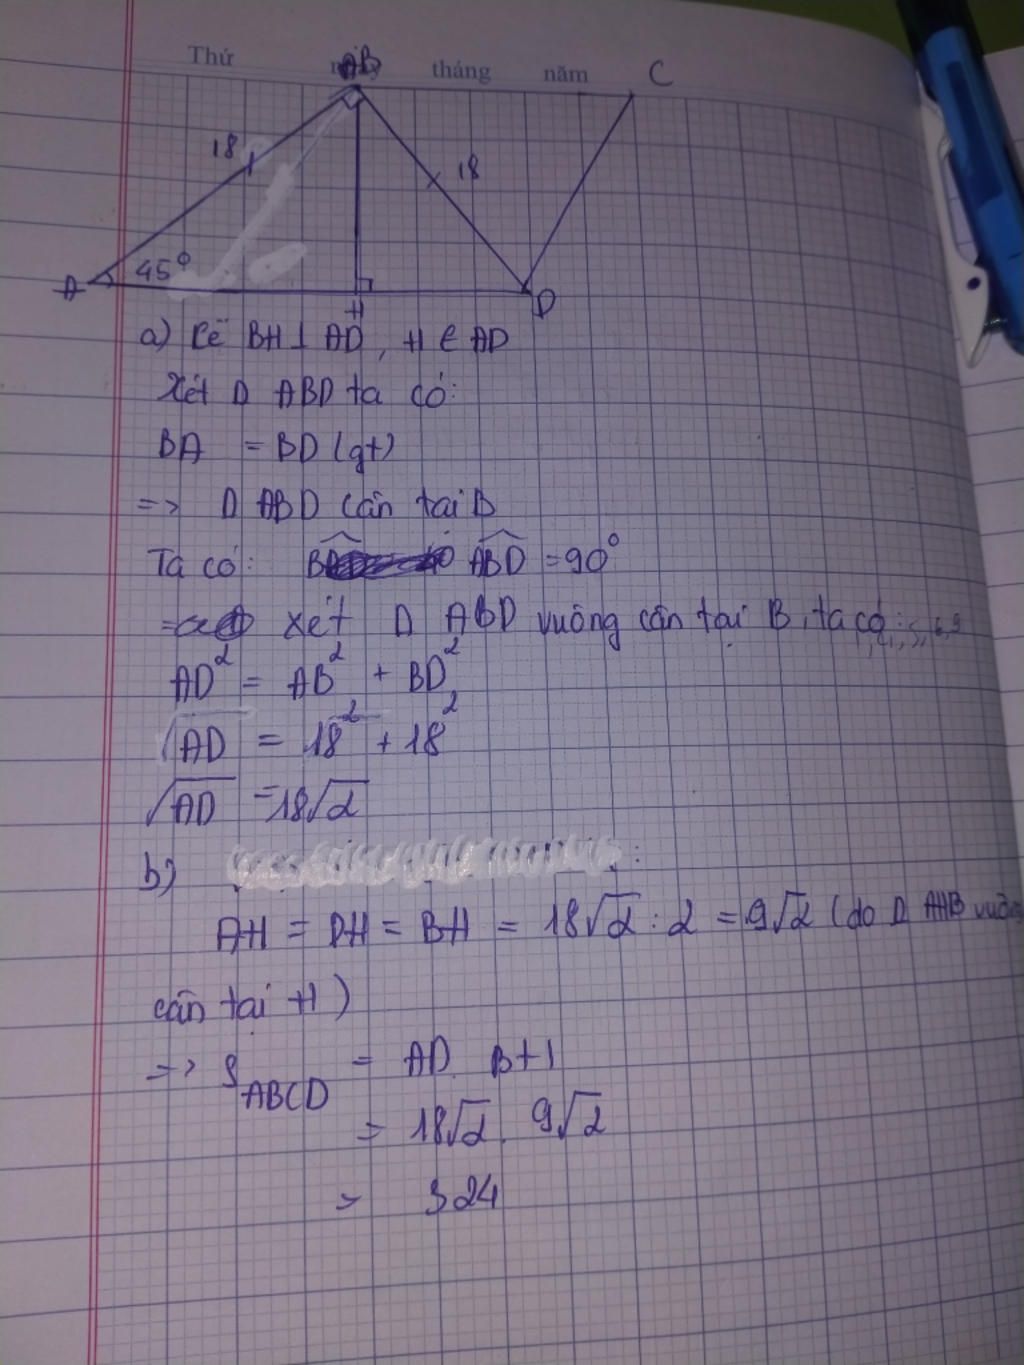 Thứ ngày tháng năm
B C
18 18
A 45° H D
a) Kẻ BH ⊥ AD, H ∈ AD
Xét Δ ABD ta có:
BA = BD (gt)
=> Δ ABD cân tại B
Ta có: ABD = 90°
xét Δ ABD vuông cân tại B, ta có:
AD² = AB² + BD²
√AD = 18² + 18²
√AD = 18√2
b)
AH = DH = BH = 18√2 : 2 = 9√2 (do Δ AHB vuông
cân tại H)
=> S ABCD = AD. BH
= 18√2. 9√2
= 324